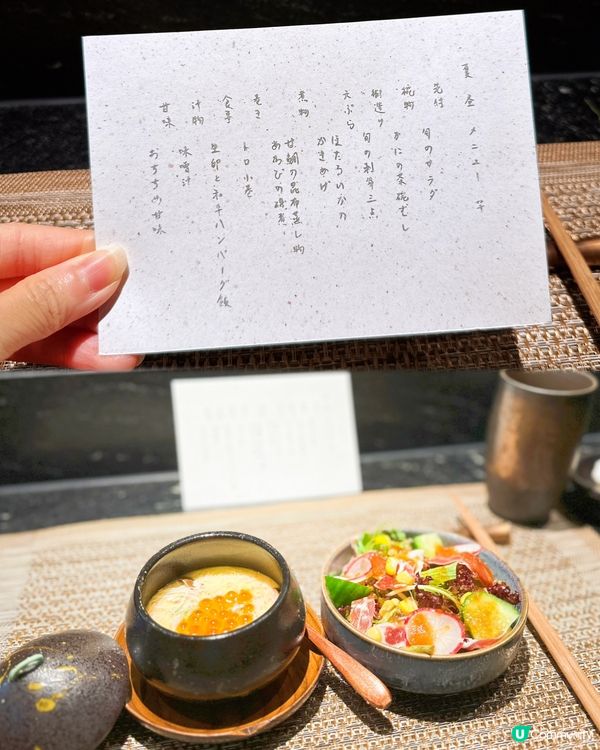 夏 昼 メニュー 竿
先付 旬のサラダ
椀物 かにの茶碗むし
御造り 旬の刺身三点
天ぷら ほたるいかの
かきあげ
煮物 甘鯛の昆布蒸し物
あわびの磯煮
巻き トロ小巻
食事 生卵と和牛ハンバーグ飯
汁物 味噌汁
甘味 おすすめ甘味
U Community